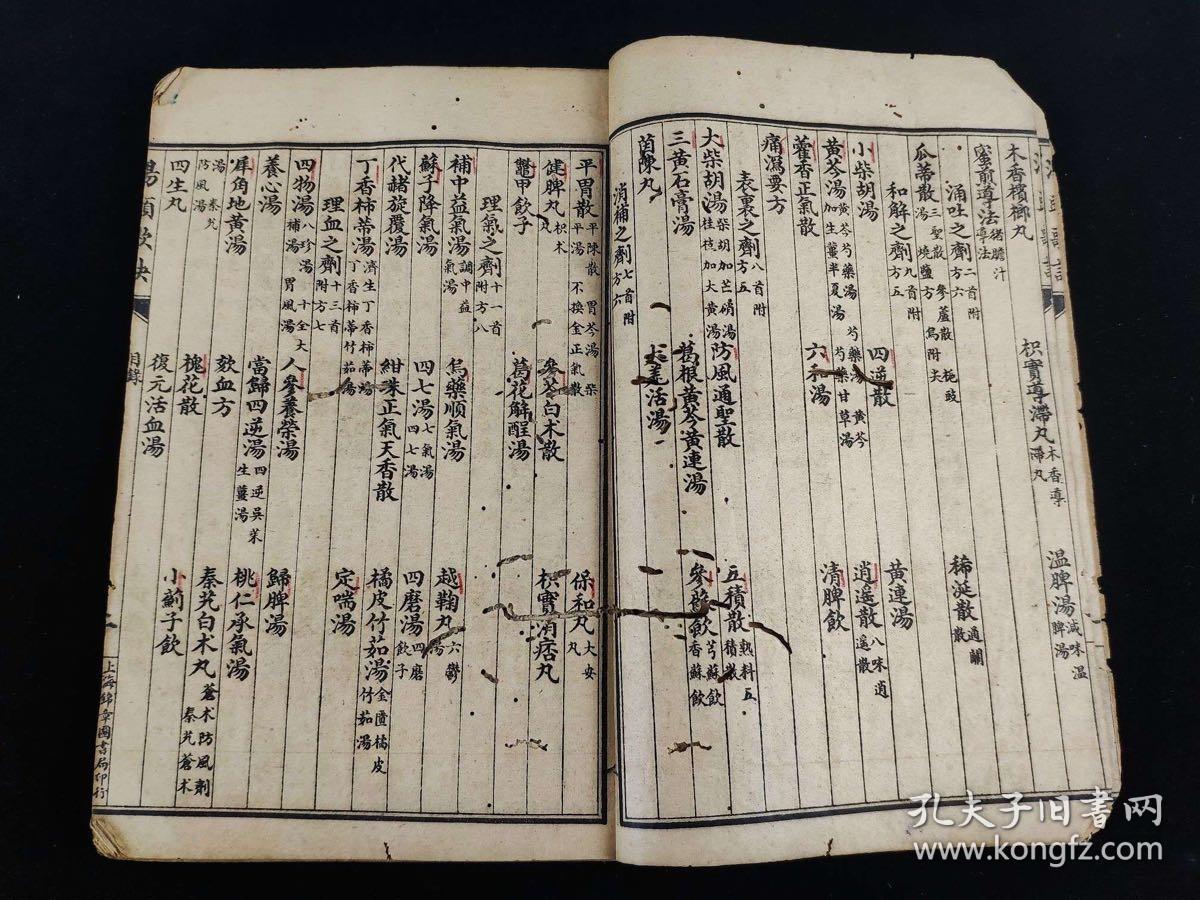 木香檳榔丸 枳實導滯丸 木香導滯丸 温脾湯 減味温脾湯
蜜煎導法 猪膽汁導法
涌吐之劑 二首附方六
瓜蒂散 三聖散 參蘆散 梔豉湯 燒鹽方 烏附尖 稀涎散 通關散
和解之劑 九首附方五
小柴胡湯 四逆散 黄連湯
黄芩湯 黄芩芍藥湯 芍藥湯 黄芩加生薑半夏湯 芍藥甘草湯 逍遥散 八味逍遥散
藿香正氣散 六和湯 清脾飲
痛瀉要方
表裏之劑 八首附方五
大柴胡湯 柴胡加芒硝湯 桂枝加大黄湯 防風通聖散 五積散 熱料五積散
三黄石膏湯 葛根黄芩黄連湯 參蘇飲 芎蘇飲 香蘇飲
茵陳丸 羌活湯
消補之劑 七首附方六
平胃散 平陳散 胃苓湯 柴平湯 不換金正氣散 保和丸 大安丸
健脾丸 枳术丸 參苓白术散 枳實消痞丸
鱉甲飲子 葛花解酲湯
理氣之劑 十一首附方八
補中益氣湯 調中益氣湯 烏藥順氣湯 越鞠丸 六鬱湯
蘇子降氣湯 四七湯 七氣湯 四七湯 四磨湯 四磨飲子
代赭旋覆湯 紺珠正氣天香散 橘皮竹茹湯 金匱橘皮竹茹湯
丁香柿蒂湯 濟生丁香柿蒂湯 丁香柿蒂竹茹湯 定喘湯
理血之劑 十三首附方七
四物湯 八珍湯 十全大補湯 胃風湯 人參養榮湯 歸脾湯
養心湯 當歸四逆湯 四逆吳茱生薑湯 桃仁承氣湯
犀角地黄湯 欬血方 秦艽白术丸 蒼术防風劑 秦艽蒼术
湯 秦艽防風湯 槐花散 小薊子飲
四生丸 復元活血湯
湯頭歌訣 目錄 二 上海錦章圖書局印行
孔夫子旧书网
www.kongfz.com